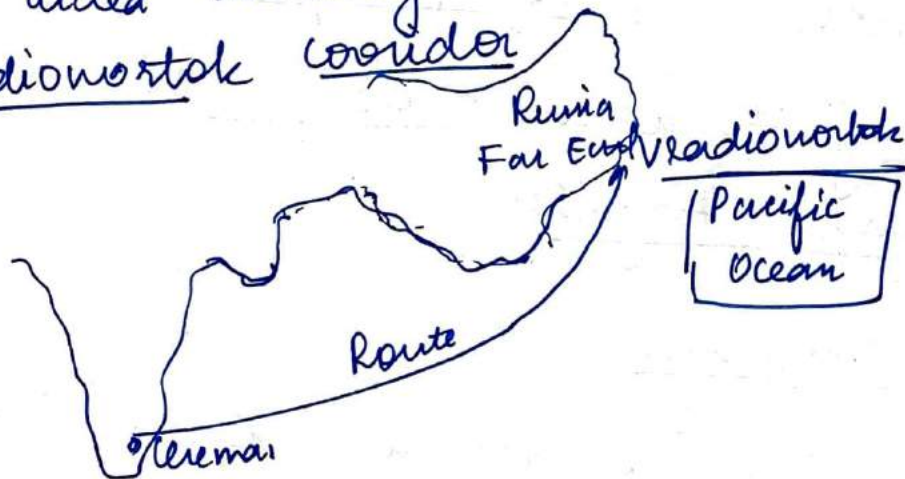 dionostok coouidor
Russia
Far East Vladionostok
Pacific
Ocean
Route